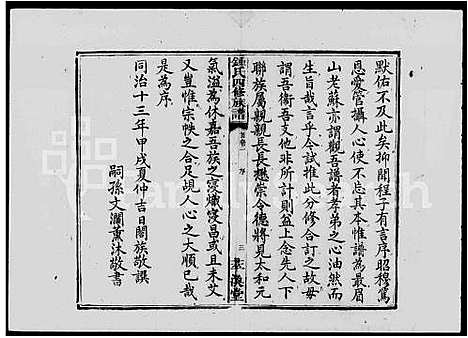 默佑不及此矣抑聞程子有言序昭穆篤
恩愛管攝人心使不忘其本惟譜為最眉
山老蘇亦謂觀吾譜者孝弟之心油然而
生旨哉言乎今試推此分修合訂之故毋
謂吾衛吾支他非所計則益上念先人下
聯族屬親親長長懋崇令德將見太和元
鍾氏四修族譜
首卷一
序
三
氣溢為休嘉吾族之寖熾寖昌或且未艾
又豈惟宗帙之合足覘人心之大順已哉
是為序
同治十三年甲戌夏仲吉日闔族敬譔
嗣孫文瀾薰沐敬書